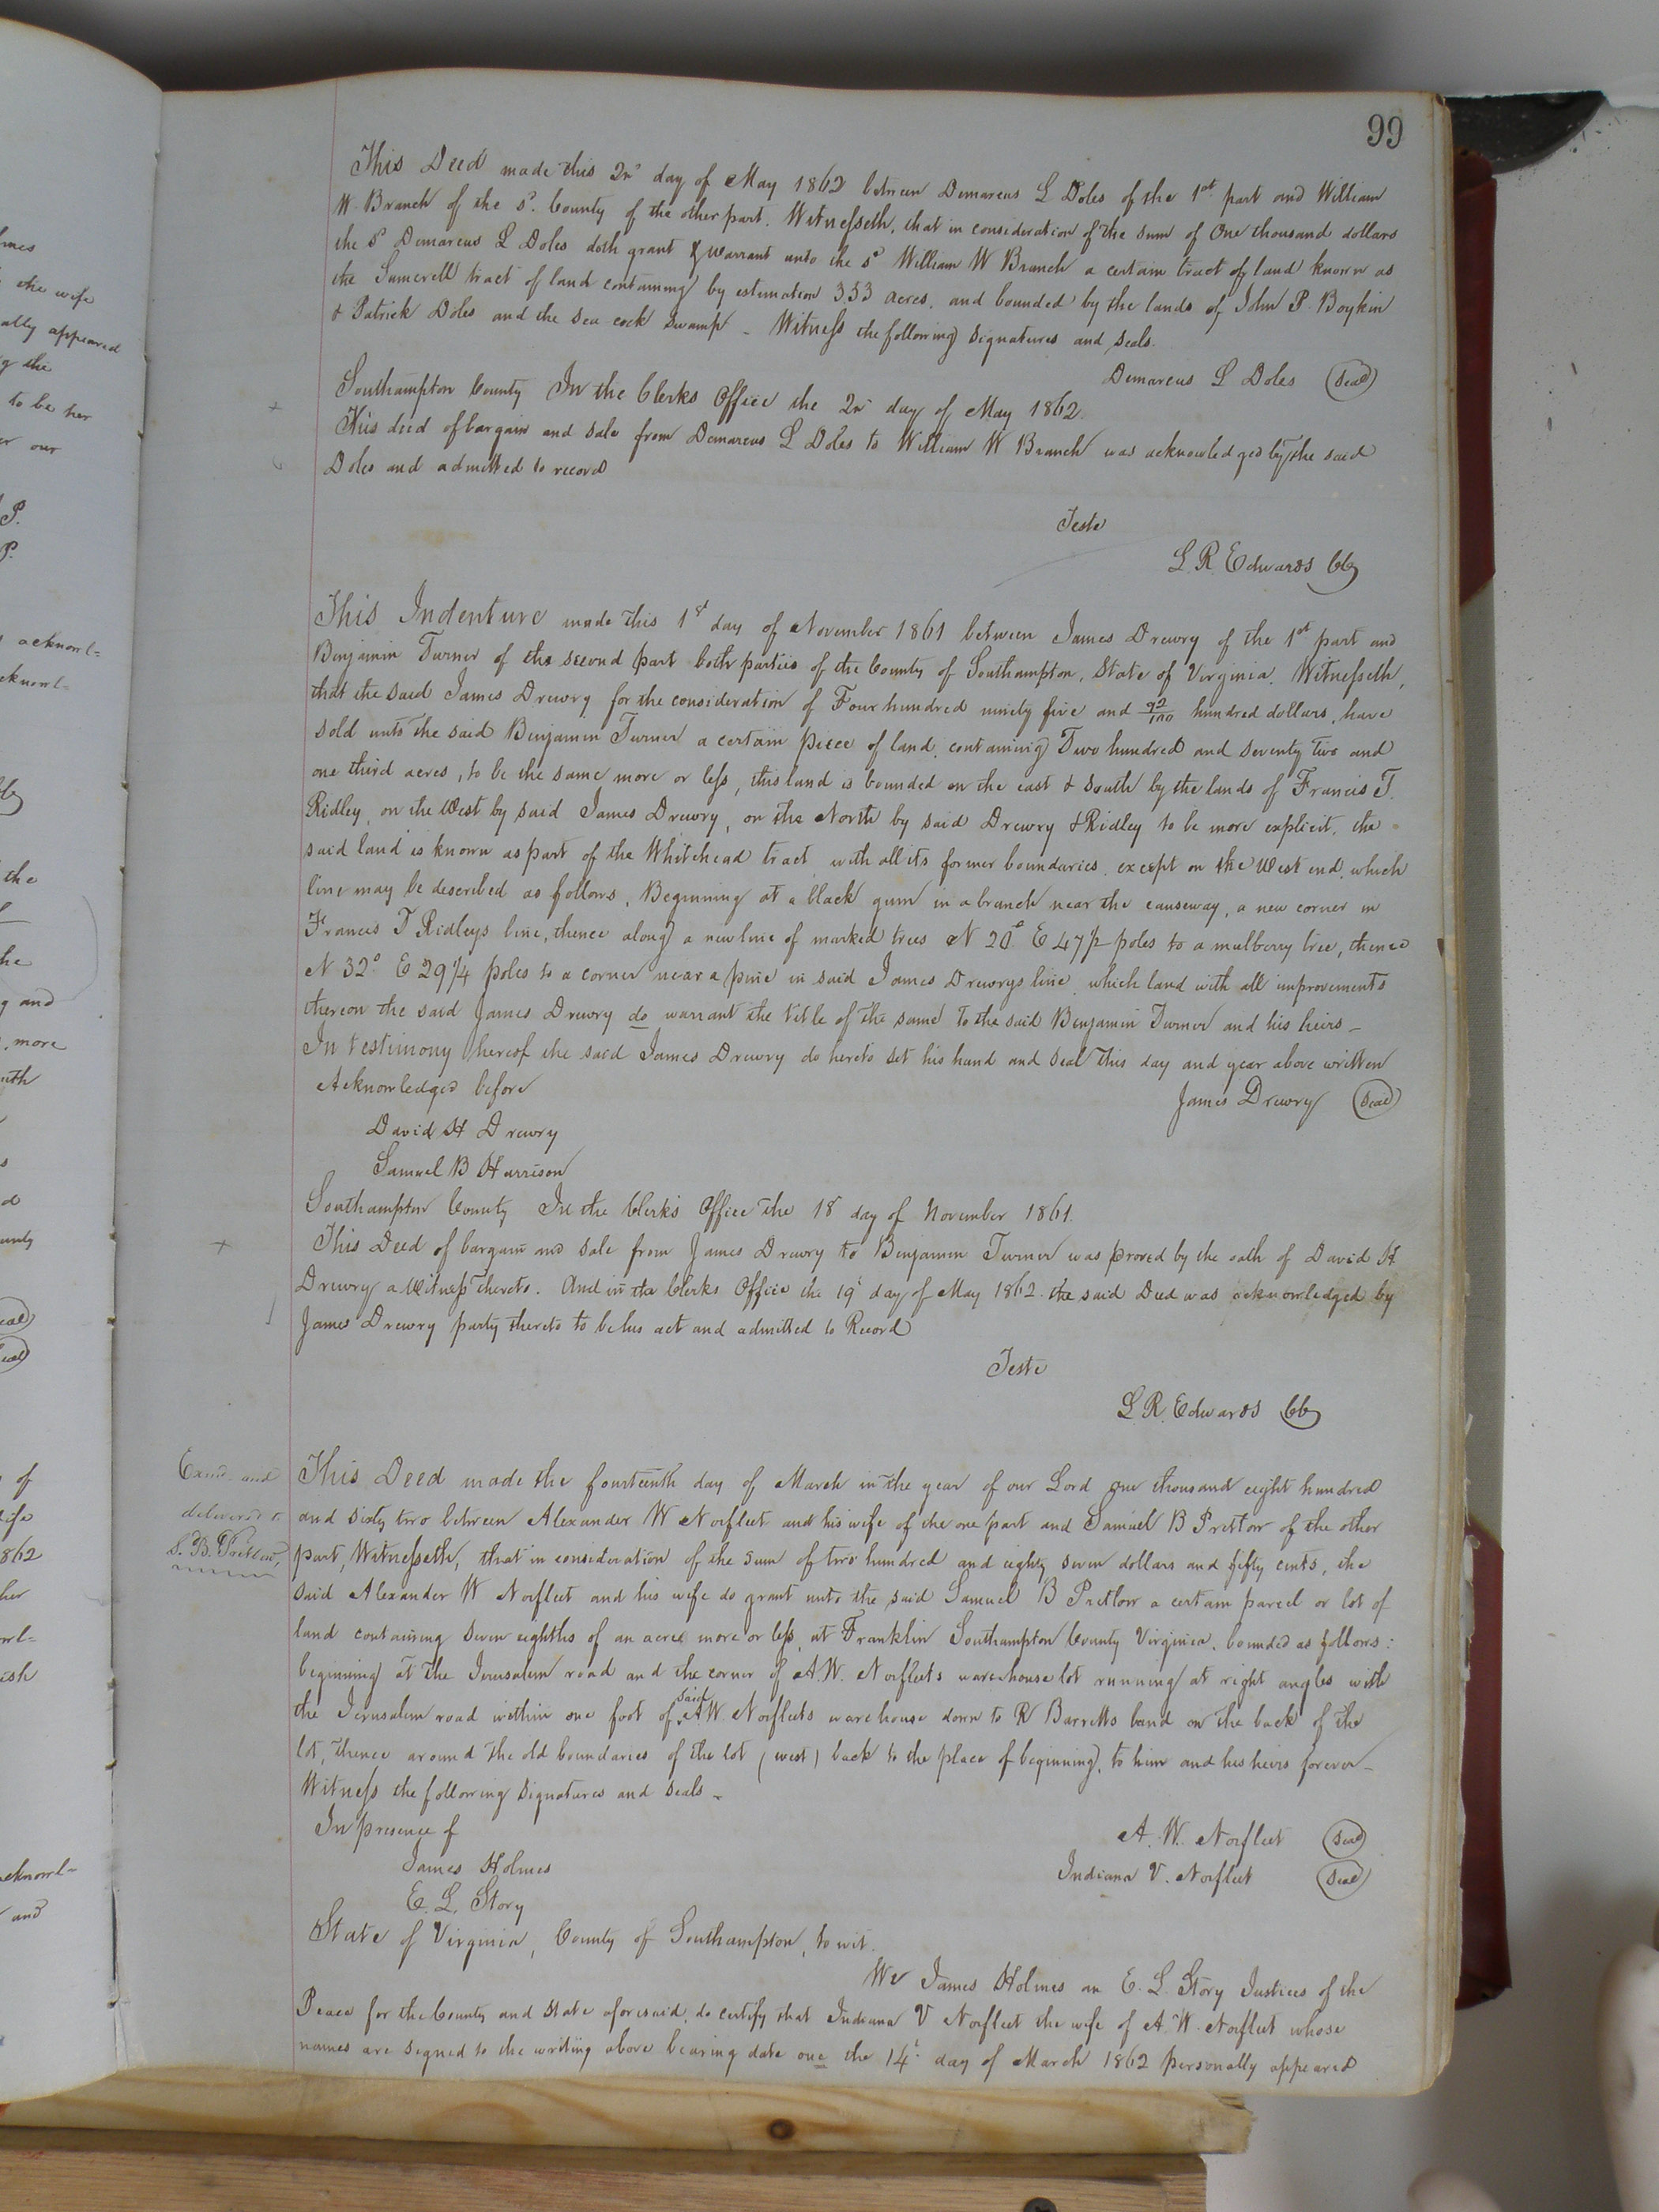 99
This Deed made this 2nd day of May 1862 between Demarcus L Doles of the 1st part and William
W. Branch of the sd. County of the other part. Witnesseth, that in consideration of the sum of One thousand dollars
the sd Demarcus L Doles doth grant & warrant unto the sd William W Branch a certain tract of land known as
the Sumerell tract of land containing by estimation 333 acres, and bounded by the lands of John P. Boykin
& Patrick Doles and the Sea cock Swamp – Witness the following signatures and seals.
Demarcus L Doles (Seal)
Southampton County In the Clerks Office the 2nd day of May 1862.
This deed of bargain and sale from Demarcus L Doles to William W Branch was acknowledged by the said
Doles and admitted to record
Teste
L. R. Edwards CC
This Indenture made this 1st day of November 1861 between James Drewry of the 1st part and
Benjamin Turner of the second part both parties of the County of Southampton, State of Virginia. Witnesseth,
that the said James Drewry for the consideration of Four hundred ninety five and 92/100 hundred dollars, have
sold unto the said Benjamin Turner a certain piece of land, containing Two hundred and seventy two and
one third acres, to be the same more or less, this land is bounded on the east & south by the lands of Francis T.
Ridley, on the West by said James Drewry, on the North by said Drewry & Ridley to be more explicit, the
said land is known as part of the Whitehead tract with all its former boundaries, except on the West end, which
line may be described as follows, Beginning at a black gum in a branch near the causeway, a new corner in
Francis T Ridleys line, thence along a new line of marked trees N 20° E 47½ poles to a mulberry tree, thence
N 32° E 29¼ poles to a corner near a pine in said James Drewrys line, which land with all improvements
thereon the said James Drewry do warrant the title of the same to the said Benjamin Turner and his heirs –
In testimony hereof the said James Drewry do hereto set his hand and seal this day and year above written
Acknowledged before
James Drewry (Seal)
David H Drewry
Samuel B Harrison
Southampton County In the Clerk's Office the 18 day of November 1861.
This Deed of bargain and sale from James Drewry to Benjamin Turner was proved by the oath of David H.
Drewry a Witness thereto. And in the Clerks Office the 19 day of May 1862 the said Deed was acknowledged by
James Drewry party thereto to be his act and admitted to Record
Teste
L. R. Edwards CC
Examd. and
delivered to
S. B. Pretlow,
This Deed made the fourteenth day of March in the year of our Lord one thousand eight hundred
and sixty two between Alexander W Norfleet and his wife of the one part and Samuel B Pretlow of the other
part, Witnesseth, that in consideration of the sum of two hundred and eighty seven dollars and fifty cents, the
said Alexander W Norfleet and his wife do grant unto the said Samuel B Pretlow a certain parcel or lot of
land containing seven eighths of an acre more or less, at Franklin Southampton County Virginia, bounded as follows:
beginning at the Jerusalem road and the corner of A.W. Norfleets warehouse lot running at right angles with
the Jerusalem road within one foot of said A W. Norfleets warehouse down to R Barretts land on the back of the
lot, thence around the old boundaries of the lot (west) back to the place of beginning, to him and his heirs forever –
Witness the following signatures and seals –
In presence of
A. W. Norfleet (Seal)
James Holmes
Indiana V. Norfleet (Seal)
E. L. Story
State of Virginia, County of Southampton, to wit.
We James Holmes an E. L. Story Justices of the
Peace for the County and State aforesaid, do certify that Indiana V Norfleet the wife of A. W. Norfleet whose
names are signed to the writing above bearing date one the 14 day of March 1862 personally appeared